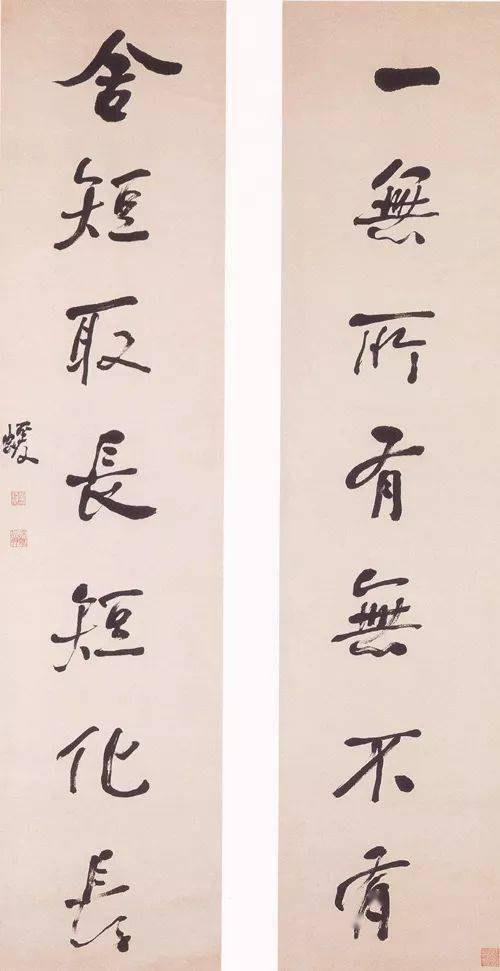 一無所有無不有
舍短取長短化長
蝯叟